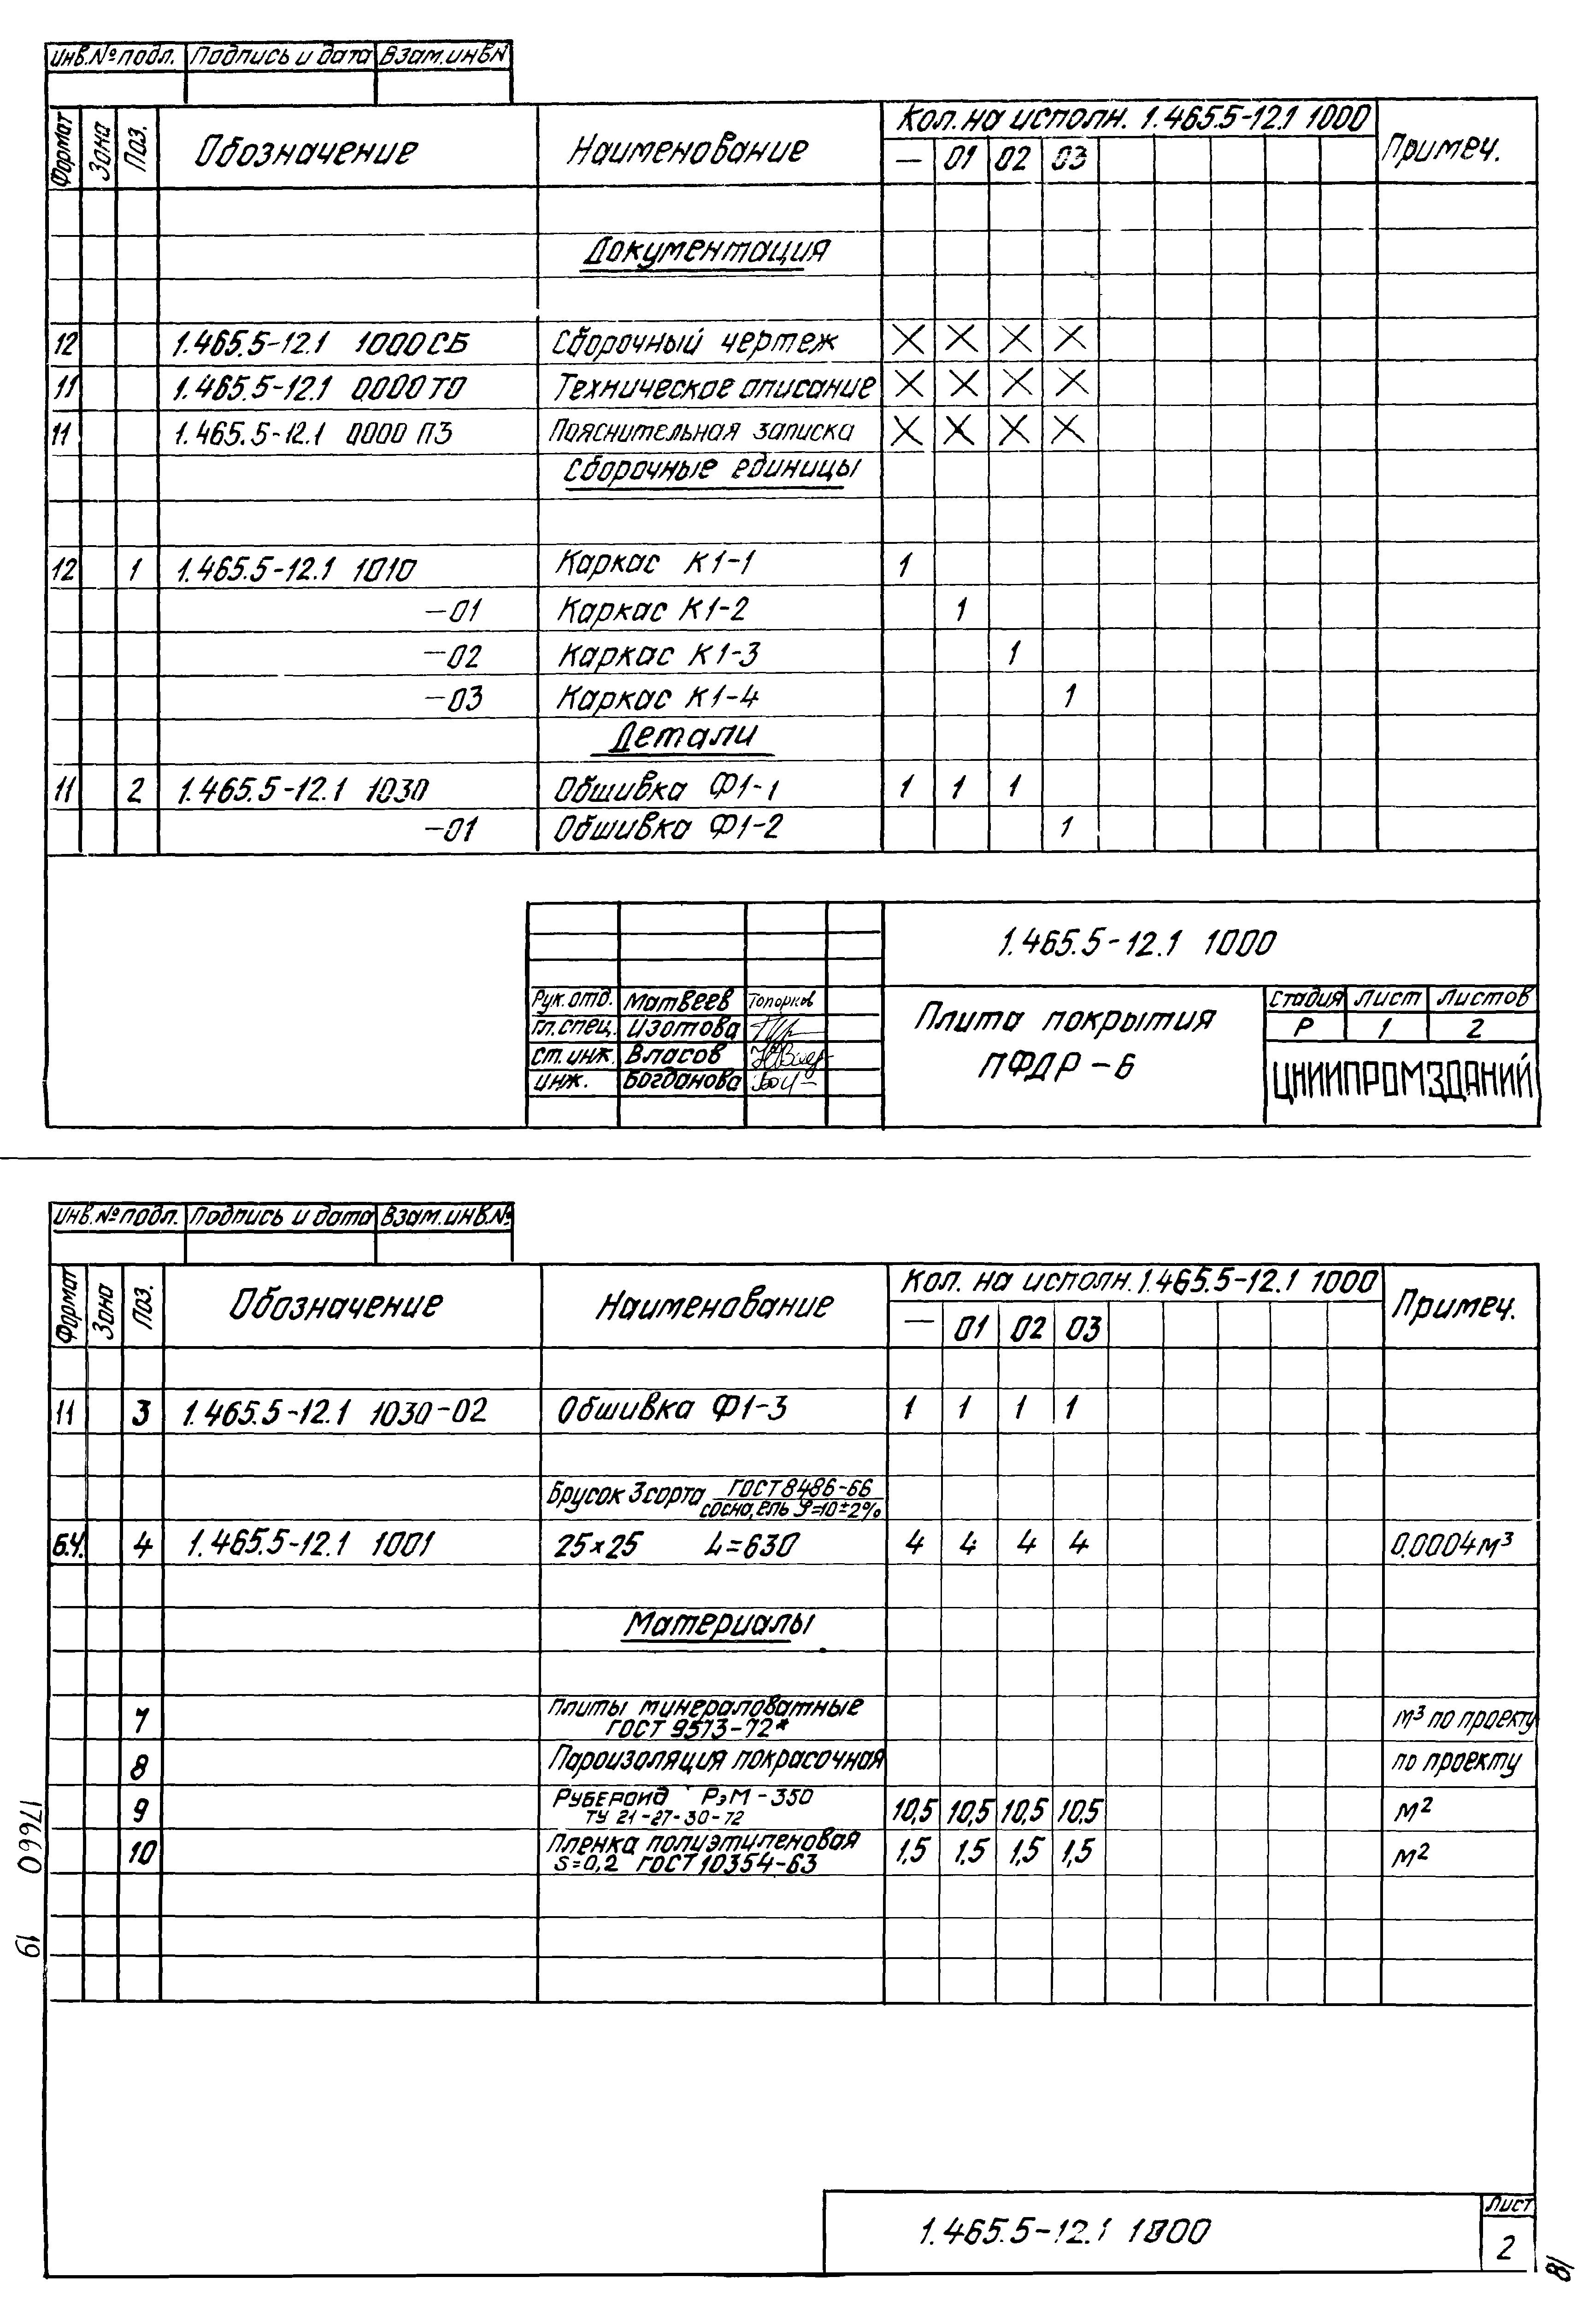 Инв.№подл. Подпись и дата Взам.инв.№
Формат Зона Поз. Обозначение Наименование Кол. на исполн. 1.465.5-12.1 1000 Примеч.
— 01 02 03
Документация
12 1.465.5-12.1 1000СБ Сборочный чертеж X X X X
11 1.465.5-12.1 0000ТО Техническое описание X X X X
11 1.465.5-12.1 0000 ПЗ Пояснительная записка X X X X
Сборочные единицы
12 1 1.465.5-12.1 1010 Каркас К1-1 1
-01 Каркас К1-2 1
-02 Каркас К1-3 1
-03 Каркас К1-4 1
Детали
11 2 1.465.5-12.1 1030 Обшивка Ф1-1 1 1 1
-01 Обшивка Ф1-2 1
1.465.5-12.1 1000
Рук.отд. Матвеев Топорков
Гл.спец. Изотова
Ст.инж. Власов
Инж. Богданова
Плита покрытия
ПФДР-6
Стадия Лист Листов
Р 1 2
ЦНИИПРОМЗДАНИЙ
Инв.№подл. Подпись и дата Взам.инв.№
Формат Зона Поз. Обозначение Наименование Кол. на исполн. 1.465.5-12.1 1000 Примеч.
— 01 02 03
11 3 1.465.5-12.1 1030-02 Обшивка Ф1-3 1 1 1 1
Брусок 3сорта ГОСТ 8486-66
сосна, ель φ=10±2%
б.ч. 4 1.465.5-12.1 1001 25×25 L=630 4 4 4 4 0.0004м³
Материалы
7 Плиты минераловатные
ГОСТ 9573-72* м³ по проекту
8 Пароизоляция покрасочная по проекту
9 Рубероид РэМ-350
ТУ 21-27-30-72 10,5 10,5 10,5 10.5 м²
10 Пленка полиэтиленовая
S=0,2 ГОСТ 10354-63 1,5 1.5 1,5 1,5 м²
17660 19
1.465.5-12.1 1000
Лист
2
18